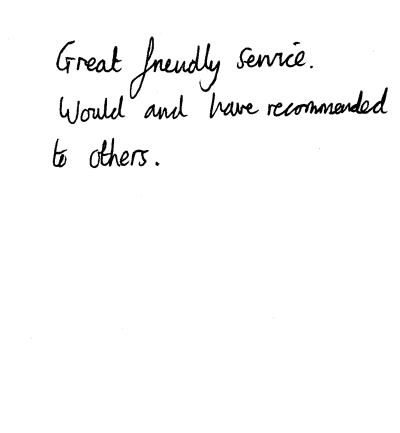 Great friendly service.
Would and have recommended
to others.